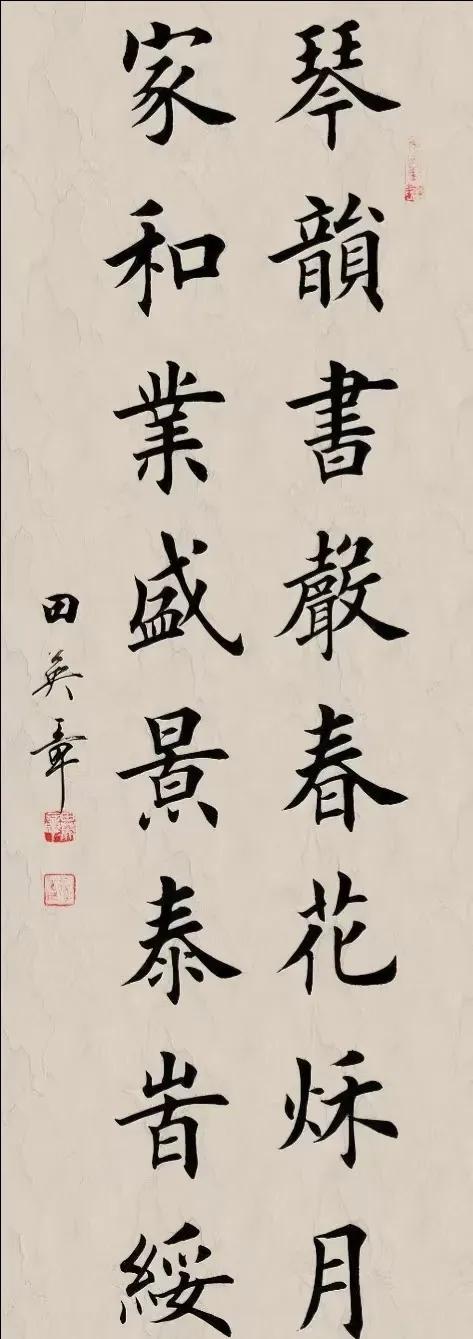 琴韻書聲春花秌月
家和業盛景泰峕綏
田英章